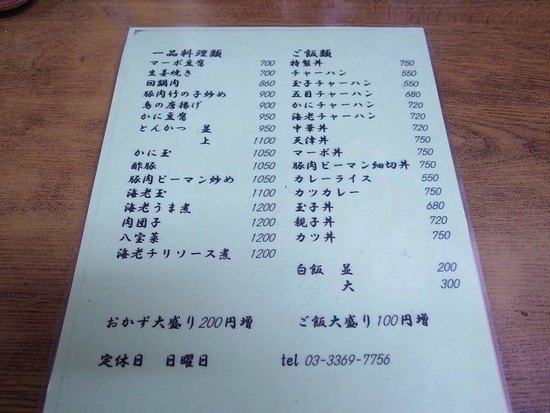 一品料理類
マーボ豆腐 700
生姜焼き 700
回鍋肉 860
豚肉竹の子炒め 900
鳥の唐揚げ 900
かに豆腐 950
とんかつ 並 950
上 1100
かに玉 1050
酢豚 1050
豚肉ピーマン炒め 1050
海老玉 1100
海老うま煮 1200
肉団子 1200
八宝菜 1200
海老チリソース煮 1200
ご飯類
特製丼 750
チャーハン 550
玉子チャーハン 550
五目チャーハン 680
かにチャーハン 720
海老チャーハン 720
中華丼 720
天津丼 750
マーボ丼 750
豚肉ピーマン細切丼 750
カレーライス 550
カツカレー 750
玉子丼 680
親子丼 720
カツ丼 750
白飯 並 200
大 300
おかず大盛り200円増
ご飯大盛り100円増
定休日 日曜日
tel 03-3369-7756